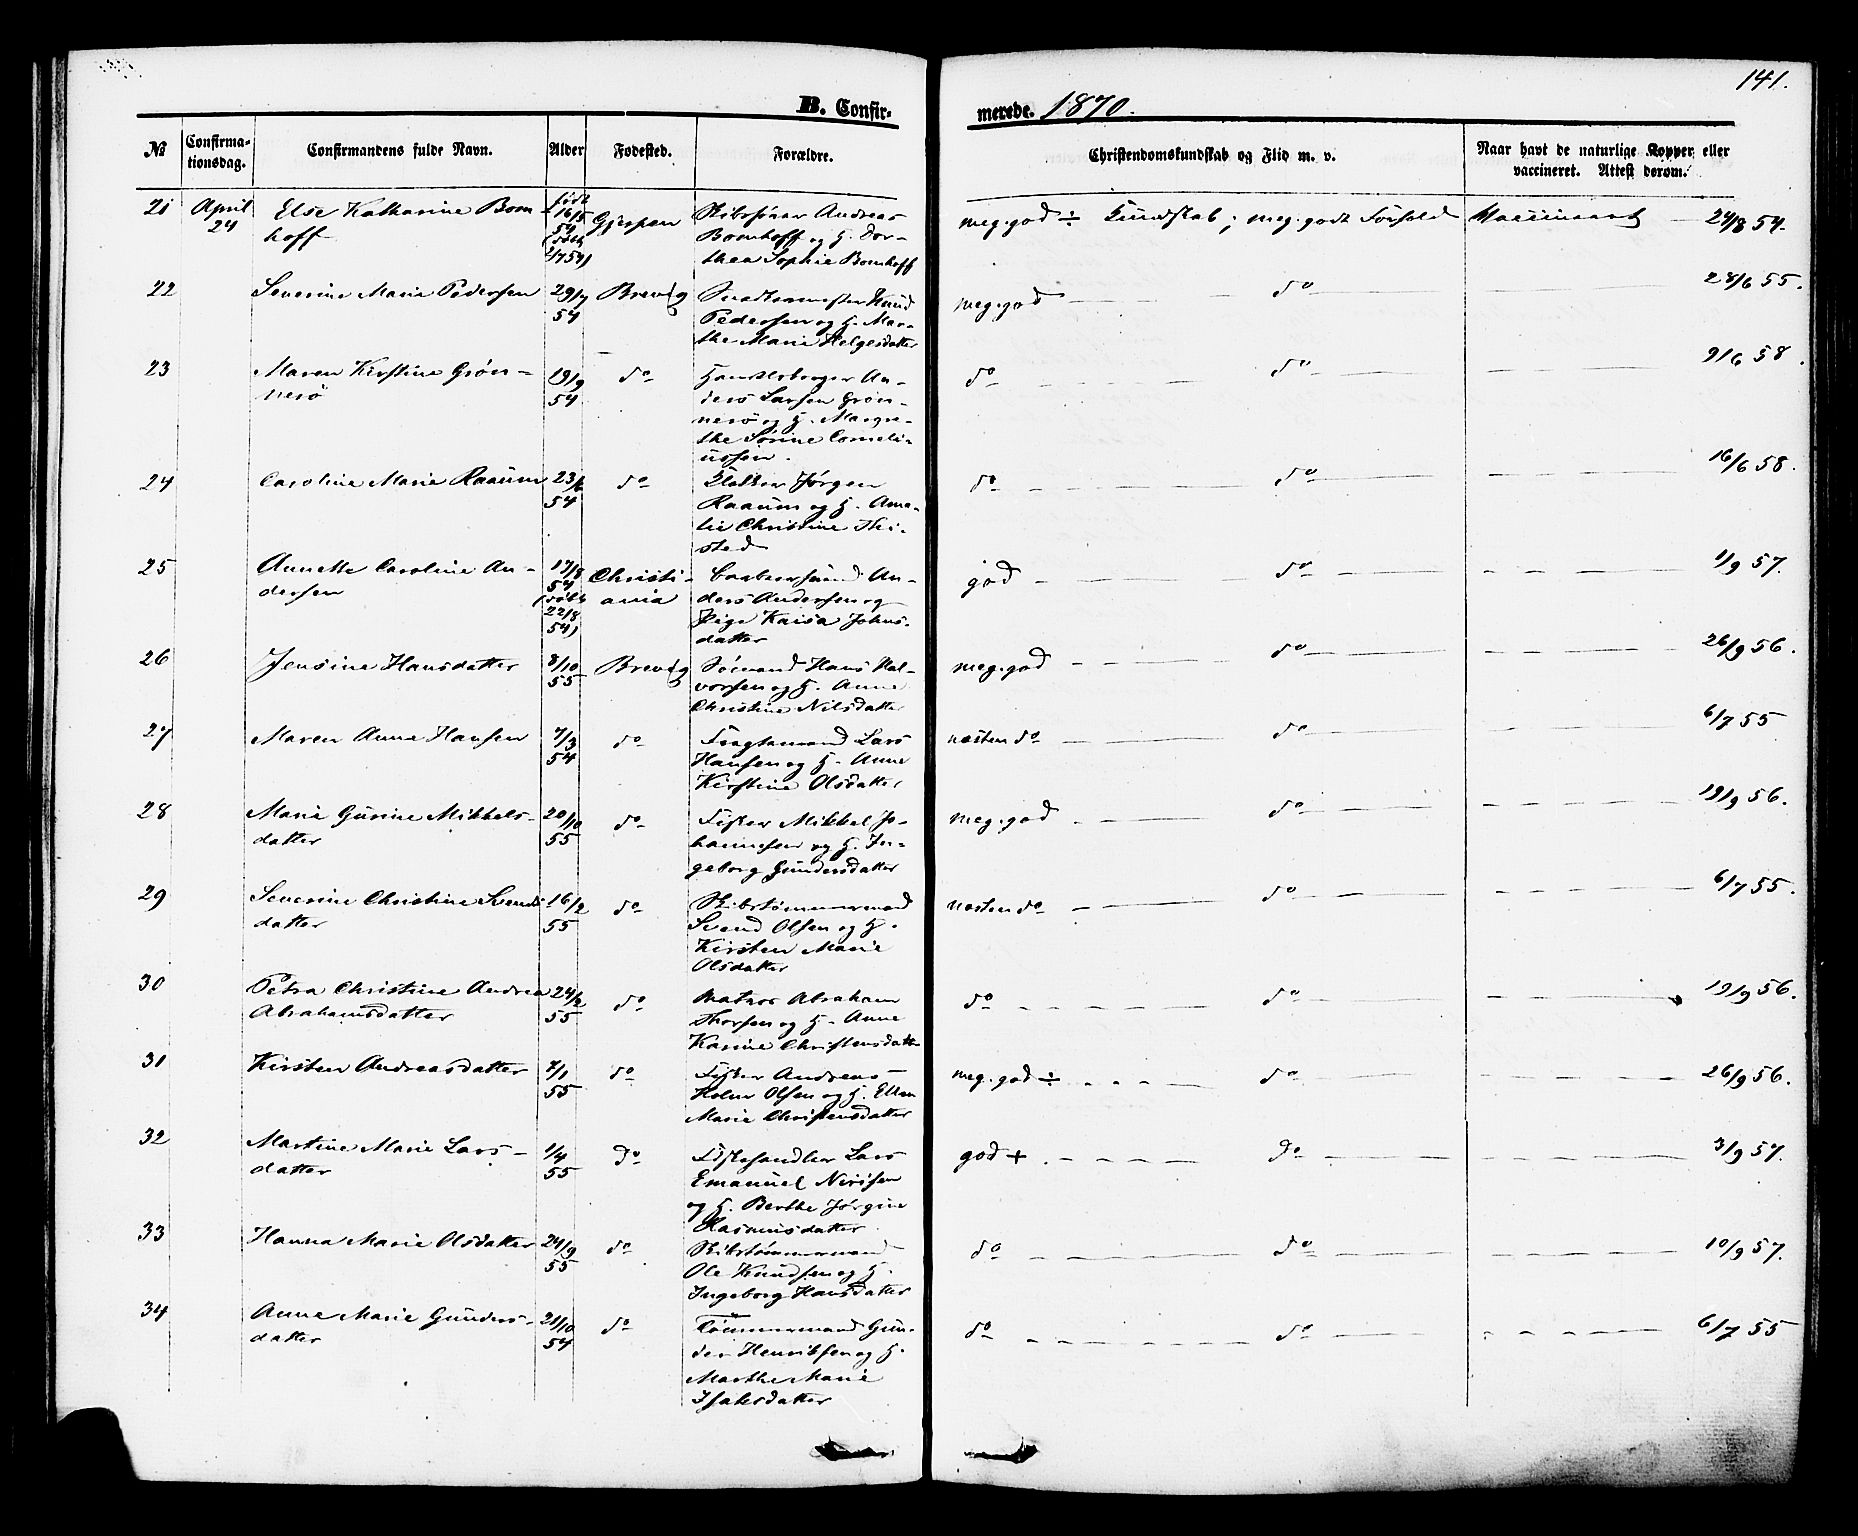 141.
B. Confirmerede. 1870.
№ | Confirmationsdag. | Confirmandens fulde Navn. | Alder | Fødested. | Forældre. | Christendomskundskab og Flid m. v. | Naar havt de naturlige Kopper eller vaccineret. Attest derom.
21 April 24 Else Katharine Bom
hoff
født 16/5 54 (døbt 2/7 54)
Gjerpen
Andreas
Bomhoff og H. Dor-
thea Sophie Bomhoff
meg. god ÷ Kundskab; meg. godt Forhold Vaccineret 24/8 54.
22 Severine Marie Pedersen 29/7 54 Brevig
Knud
Pedersen og H. Mar-
the Marie Helgesdatter
meg. god do 28/6 55.
23 Maren Kirstine Grøn-
nerö
19/9 54 do
Handelsborger An-
ders Larsen Grön-
nerö og H. Margre-
the Sörine Corneli-
ussen.
do do 9/6 58.
24 Caroline Marie Raaum 23/6 54 do
Kloker Jørgen
Raaum og H. Ama-
lie Christine Thi-
sted
do do 16/6 58.
25 Annette Caroline An-
dersen
17/8 54 (døbt 22/8 54)
Christi-
ania
An-
ders Andersen og
Pige Kaisa Johns-
datter
god do 1/9 57.
26 Jensine Hansdatter 8/10 55 Brevig
Sömand Hans Hal-
vorsen og H. Anne
Christine Nilsdatter
meg. god do 26/9 56.
27 Maren Anne Hansen 7/3 54 do
Fragtemand Lars
Hansen og H. Anne
Kirstine Olsdatter
næsten do do 6/7 55
28 Marie Gurine Mikkels-
datter
20/10 55 do
Fisker Mikkel Jo-
hannesen og H. In-
geborg Gundersdatter
meg. god do 19/9 56.
29 Severine Christine Svends
datter
16/2 55 do
Skibstømmermand
Svend Olsen og H.
Kirsten Marie
Olsdatter
næsten do do 6/7 55.
30 Petra Christine Andrea
Abrahamsdatter
24/2 55 do
Matros Abraham
Thorsen og H. Anne
Karine Christensdatter
do do 19/9 56.
31 Kirsten Andreasdatter 7/1 55 do
Fisker Andreas
Holm Olsen og H. Ellen
Marie Christensdatter
meg. god ÷ do 26/9 56.
32 Martine Marie Lars-
datter
1/4 55 do
Fiskehandler Lars
Emanuel
og H. Berthe Jørgine
Rasmusdatter
god + do 3/9 57.
33 Hanna Marie Olsdatter 24/9 55 do
Skibstømmermand
Ole Knudsen og H.
Ingeborg Hansdatter
do do 10/9 57.
34 Anne Marie Gunders-
datter
21/10 54 do
Tömmermand Gun-
der Henriksen og H.
Marthe Marie
Isaksdatter
do do 6/7 55